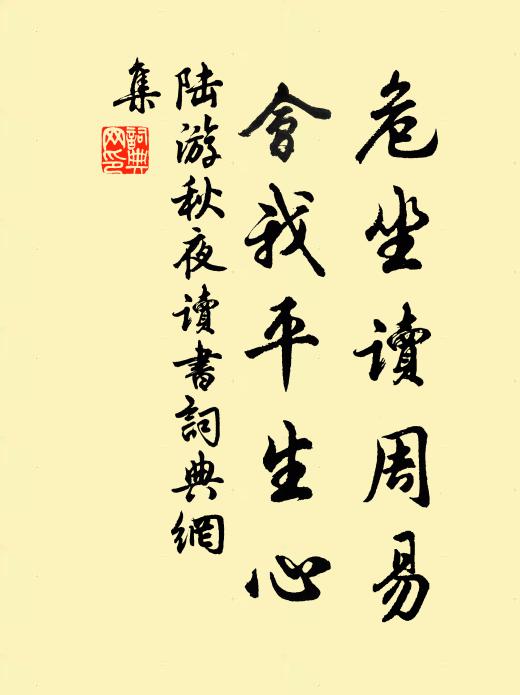 危坐讀周易
會我平生心
陸游秋夜讀書詞典網
集
詞典
网印